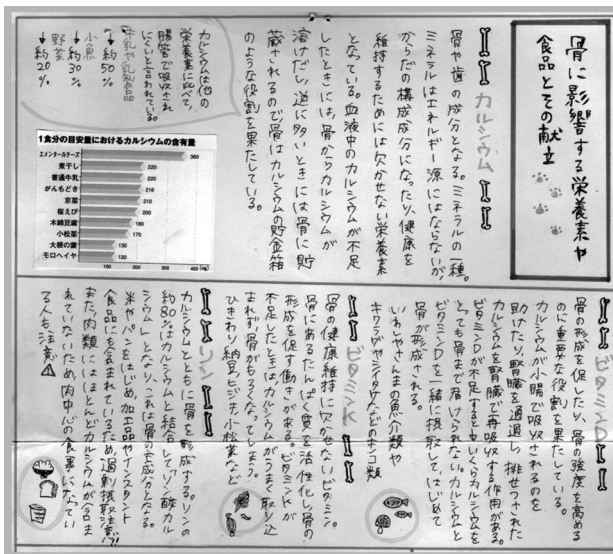 骨に影響する栄養素や
食品とその献立
カルシウム
骨や歯の成分となる。ミネラルの一種。
ミネラルはエネルギー源にはならないが、
からだの構成成分になったり、健康を
維持するためには欠かせない栄養素
となっている。血液中のカルシウムが不足
したときには、骨からカルシウムが
溶けだし、逆に多いときには骨に貯
蔵されるので骨はカルシウムの貯金箱
のような役割を果たしている。
カルシウムは他の
栄養素に比べて、
腸管で吸収され
にくいと言われている。
牛乳や乳製品
→約50%
小魚
→約30%
野菜
→約20%
1食分の目安量におけるカルシウムの含有量
エメンタールチーズ 360
煮干し 220
普通牛乳 220
がんもどき 216
京菜 210
桜えび 200
木綿豆腐 180
小松菜 170
大根の葉 130
モロヘイヤ 130
0 100 200 300 400(mg)
ビタミンD
骨の形成を促したり、骨の強度を高める
のに重要な役割を果たしている。
カルシウムが小腸で吸収されるのを
助けたり、腎臓を通過し、排せつされた
カルシウムを腎臓で再吸収する作用がある。
ビタミンDが不足するといくらカルシウムを
とっても骨まで届けられない。カルシウムと
ビタミンDを一緒に摂取して、はじめて
骨が形成される。
いわしやさんまの魚介類や
キクラゲやシイタケなどのキノコ類
ビタミンK
骨の健康維持に欠かせないビタミン。
骨にあるたんぱく質を活性化し骨の
形成を促す働きがある。ビタミンKが
不足したときは、カルシウムがうまく取り込
まれず、骨がもろくなってしまう。
ひきわり納豆、ヒジキ、小松菜など
リン
カルシウムとともに骨を形成する。リンの
約80%はカルシウムと結合して「リン酸カル
シウム」となり、これは骨の主成分となる。
米やパンをはじめ、加工品やインスタント
食品にも含まれているため、過剰摂取注意!!
また、肉類にはほとんどカルシウムが含ま
れていないため、肉中心の食事になってい
る人も注意⚠